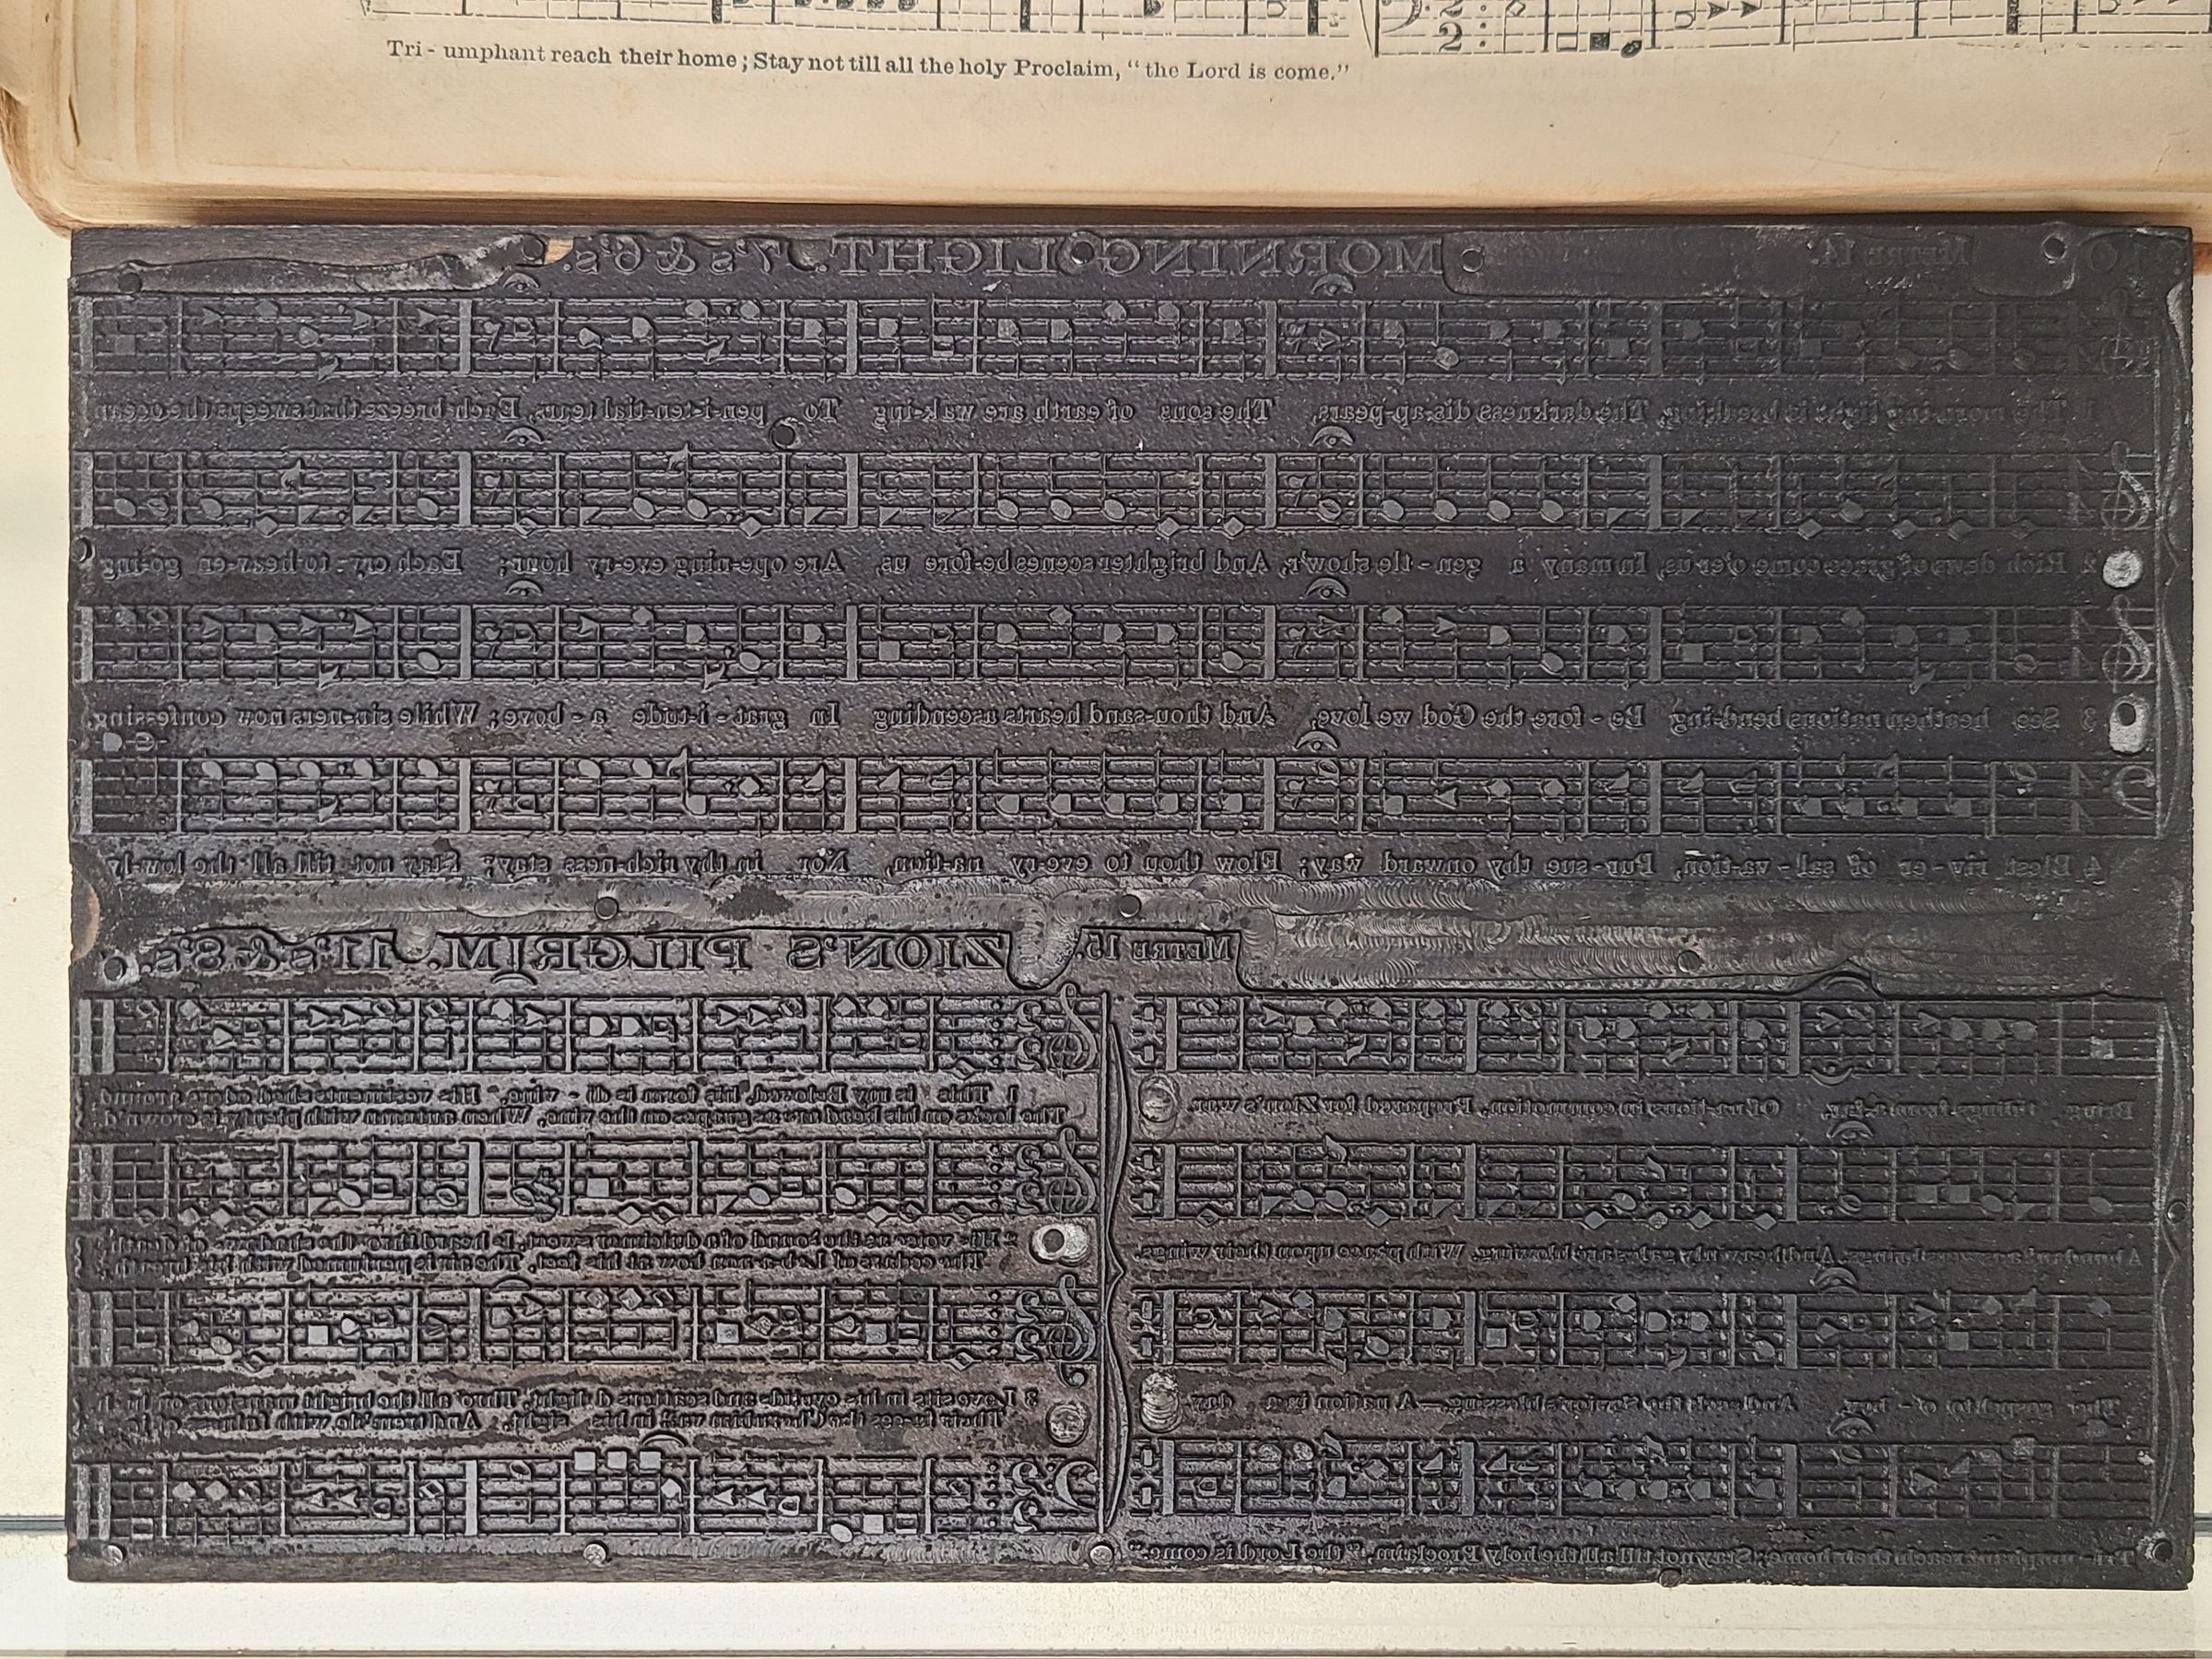 Tri - umphant reach their home ; Stay not till all the holy Proclaim, “ the Lord is come.”
2
2
METRE 14. MORNING LIGHT. 7's & 6's.
1 The morn-ing light is breaking, The darkness dis-ap-pears, The sons of earth are wak-ing To pen-i-ten-tial tears, Each breeze that sweeps the ocean
4
4
2 Rich dews of grace come o'er us, In many a gen - tle show'r, And brighter scenes be-fore us Are ope-ning eve-ry hour; Each cry, to heav-en going
4
4
3 See heathen nations bend-ing Be - fore the God we love, And thou-sand hearts ascending In grat - i-tude a - bove; While sin-ners now confessing,
4
4
4 Blest riv-er of sal - va-tion, Pur-sue thy onward way; Flow thou to eve-ry na-tion, Nor in thy rich-ness stay; Stay not till all the lowly
METRE 15. ZION'S PILGRIM. 11's & 8's.
Bring tidings from a-far, Of na-tions in commotion, Prepared for Zion's war.
1 This is my Beloved, his form is di - vine, His vestments shed odors around;
The locks on his head are as grapes on the vine, When autumn with plenty is crown'd.
Abundant answers brings, And heavenly gales are blowing, With peace upon their wings.
2 His voice as the sound of a dulcimer sweet, Is heard thro' the shadows of death;
The cedars of Leb-a-non bow at his feet, The air is perfumed with his breath.
The gospel to o - bey, And seek the Savior's blessing,—A nation in a day.
3 Love sits in his eyelids and scatters delight, Thro' all the bright mansions on high
Their fa-ces the Cherubim vail in his sight, And trem'ble with fulness of joy.
Tri - umphant reach their home; Stay not till all the holy Proclaim, “the Lord is come.”